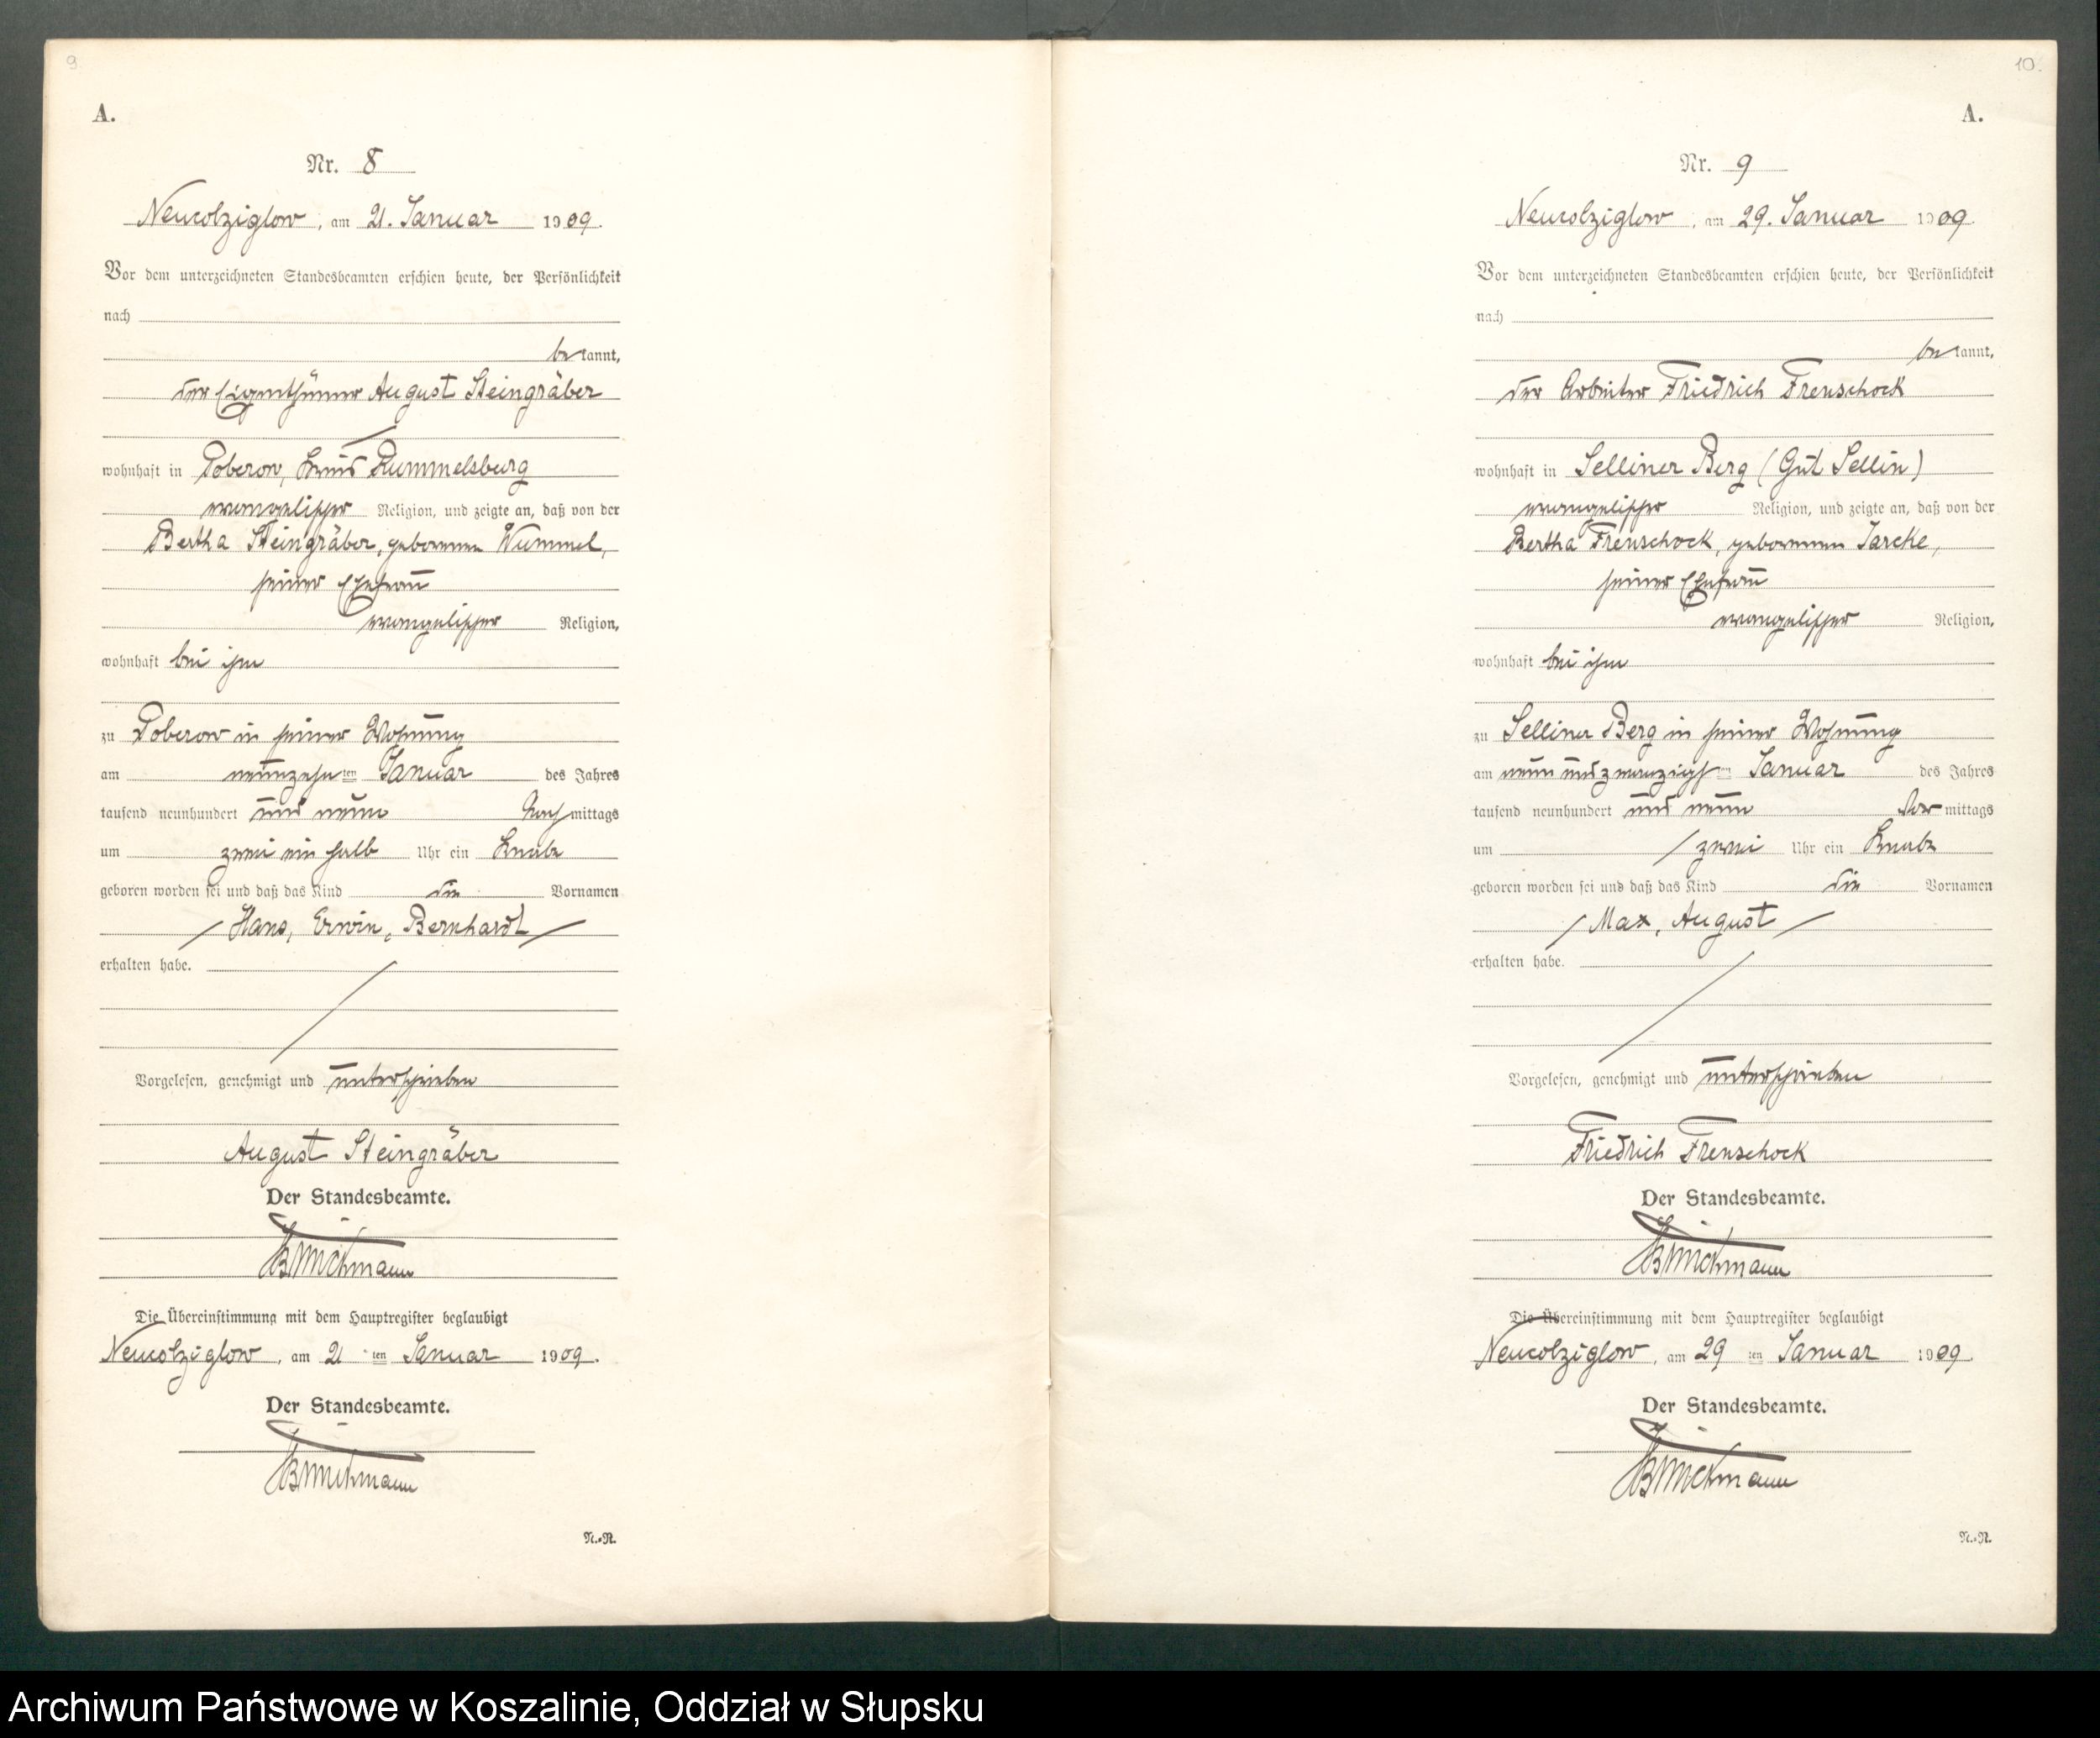 9.
A.
Nr. 8
Neucolziglow, am 21. Januar 1909.
Vor dem unterzeichneten Standesbeamten erschien heute, der Persönlichkeit
nach
be kannt,
der Eigenthümer August Steingräber
wohnhaft in Poberow, Kreis Rummelsburg
evangelischer Religion, und zeigte an, daß von der
Bertha Steingräber, geborenen Wummel,
seiner Ehefrau
evangelischer Religion,
wohnhaft bei ihm
zu Poberow in seiner Wohnung
am neunzehnten Januar des Jahres
tausend neunhundert und neun Nachmittags
um zwei ein halb Uhr ein Knabe
geboren worden sei und daß das Kind die Vornamen
Hans, Erwin, Bernhardt
erhalten habe.
Vorgelesen, genehmigt und unterschrieben
August Steingräber
Der Standesbeamte.
Die Übereinstimmung mit dem Hauptregister beglaubigt
Neucolziglow, am 21 ten Januar 1909.
Der Standesbeamte.
N.-N.
10.
A.
Nr. 9
Neucolziglow, am 29. Januar 1909.
Vor dem unterzeichneten Standesbeamten erschien heute, der Persönlichkeit
nach
be kannt,
der Arbeiter Friedrich Frenschock
wohnhaft in Selliner Berg (Gut Sellin)
evangelischer Religion, und zeigte an, daß von der
Bertha Frenschock, geborenen Jarcke,
seiner Ehefrau
evangelischer Religion,
wohnhaft bei ihm
zu Selliner Berg in seiner Wohnung
am neun und zwanzigsten Januar des Jahres
tausend neunhundert und neun Vormittags
um zwei Uhr ein Knabe
geboren worden sei und daß das Kind die Vornamen
Max, August
erhalten habe.
Vorgelesen, genehmigt und unterschrieben
Friedrich Frenschock
Der Standesbeamte.
Die Übereinstimmung mit dem Hauptregister beglaubigt
Neucolziglow, am 29 ten Januar 1909.
Der Standesbeamte.
N.-N.
Archiwum Państwowe w Koszalinie, Oddział w Słupsku